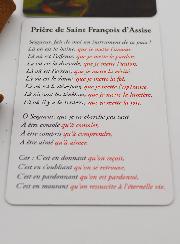 Prière de Saint François d'Assise
Seigneur, fais de moi un instrument de ta paix !
Là où est la haine, que je mette l'amour.
Là où est l'offense, que je mette le pardon.
Là où est la discorde, que je mette l'union.
Là où est l'erreur, que je mette la vérité.
Là où est le doute, que je mette la foi.
Là où est le désespoir, que je mette l'espérance.
Là où sont les ténèbres, que je mette la lumière.
Là où il y a la tristesse, que je mette la joie.
O Seigneur, que je ne cherche pas tant
À être consolé qu'à consoler,
À être compris qu'à comprendre,
À être aimé qu'à aimer.
Car : C'est en donnant qu'on reçoit,
C'est en s'oubliant qu'on se retrouve,
C'est en pardonnant qu'on est pardonné,
C'est en mourant qu'on ressuscite à l'éternelle vie.